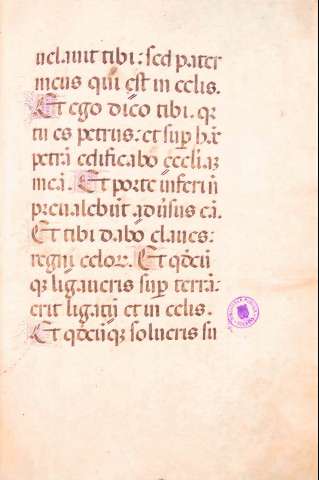 uelauit tibi: sed pater
meus qui est in celis.
Et ego dico tibi. qr
tu es petrus: et sup hac
petrā edificabo eccliaz
meā. Et porte inferi nō
preualebūt aduersus eā.
Et tibi dabo claues:
regni celor. Et qdcū
qz ligaueris sup terrā:
erit ligatū et in celis.
Et qdcūqz solueris su